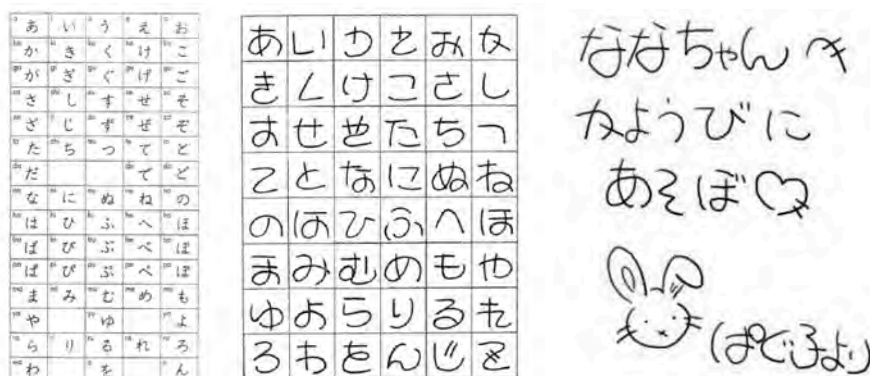 あ い う え お
か き く け こ
が ぎ ぐ げ ご
さ し す せ そ
ざ じ ず ぜ ぞ
た ち つ て と
だ で ど
な に ぬ ね の
は ひ ふ へ ほ
ば び ぶ べ ぼ
ぱ ぴ ぷ ぺ ぽ
ま み む め も
や ゆ よ
ら り る れ ろ
わ を ん
あ い う え お か
き く け こ さ し
す せ そ た ち つ
て と な に ぬ ね
の は ひ ふ へ ほ
ま み む め も や
ゆ よ ら り る れ
ろ わ を ん じ
ななちゃんへ
かようびに
あそぼ♡
より